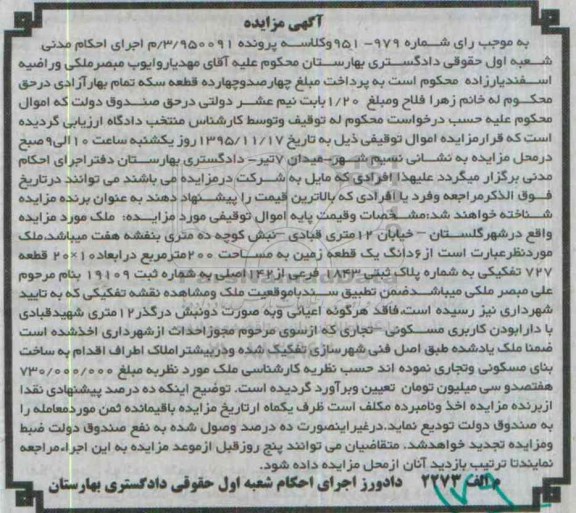 آگهی مزایده
به موجب رای شماره ۹۷۹-۹۵۱ وکلاسه پرونده ۳/۹۵۰۰۹۱/م اجرای احکام مدنی
شعبه اول حقوقی دادگستری بهارستان محکوم علیه آقای مهدیاروایوب مبصرملکی وراضیه
اسفندیارزاده محکوم است به پرداخت مبلغ چهارصدوچهارده قطعه سکه تمام بهارآزادی درحق
محکوم له خانم زهرا فلاح ومبلغ ۱/۲۰ بابت نیم عشر دولتی درحق صندوق دولت که اموال
محکوم علیه حسب درخواست محکوم له توقیف وتوسط کارشناس منتخب دادگاه ارزیابی گردیده
است که قرارمزایده اموال توقیفی ذیل به تاریخ ۱۳۹۵/۱۱/۱۷ روز یکشنبه ساعت ۱۰ الی ۹ صبح
درمحل مزایده به نشانی نسیم شهر-میدان ۷تیر- دادگستری بهارستان دفتراجرای احکام
مدنی برگزار میگردد علیهذا افرادی که مایل به شرکت درمزایده می باشند می توانند درتاریخ
فوق الذکرمراجعه وفرد یا افرادی که بالاترین قیمت را پیشنهاد دهند به عنوان برنده مزایده
شناخته خواهند شد؛مشخصات وقیمت پایه اموال توقیفی مورد مزایده: ملک مورد مزایده
واقع درشهرگلستان – خیابان ۱۲متری قبادی –نبش کوچه ده متری بنفشه هفت میباشد،ملک
موردنظرعبارت است از۶دانگ یک قطعه زمین به مساحت ۲۰۰مترمربع درابعاد۱۰×۲۰ قطعه
۷۲۷ تفکیکی به شماره پلاک ثبتی ۱۸۴۳ فرعی از۱۴۲اصلی به شماره ثبت ۱۹۱۰۹ بنام مرحوم
علی مبصر ملکی میباشدضمن تطبیق سندباموقعیت ملک ومشاهده نقشه تفکیکی که به تایید
شهرداری نیز رسیده است،فاقد هرگونه اعیانی وبه صورت دونبش درگذر۱۲متری شهیدقبادی
با دارابودن کاربری مسکونی – تجاری که ازسوی مرحوم مجوزاحداث ازشهرداری اخذشده است
ضمنا ملک یادشده طبق اصل فنی شهرسازی تفکیک شده ودربیشتراملاک اطراف اقدام به ساخت
بنای مسکونی وتجاری نموده اند حسب نظریه کارشناسی ملک مورد نظربه مبلغ ۷۳۰/۰۰۰/۰۰۰
هفتصدو سی میلیون تومان تعیین وبرآورد گردیده است. توضیح اینکه ده درصد پیشنهادی نقدا
ازبرنده مزایده اخذ ونامبرده مکلف است ظرف یکماه ازتاریخ مزایده باقیمانده ثمن موردمعامله را
به صندوق دولت تودیع نماید.درغیراینصورت ده درصد وصول شده به نفع صندوق دولت ضبط
ومزایده تجدید خواهدشد. متقاضیان می توانند پنج روزقبل ازموعد مزایده به این اجراءمراجعه
نمایندتا ترتیب بازدید آنان ازمحل مزایده داده شود.
م الف ۲۲۷۳ دادورز اجرای احکام شعبه اول حقوقی دادگستری بهارستان